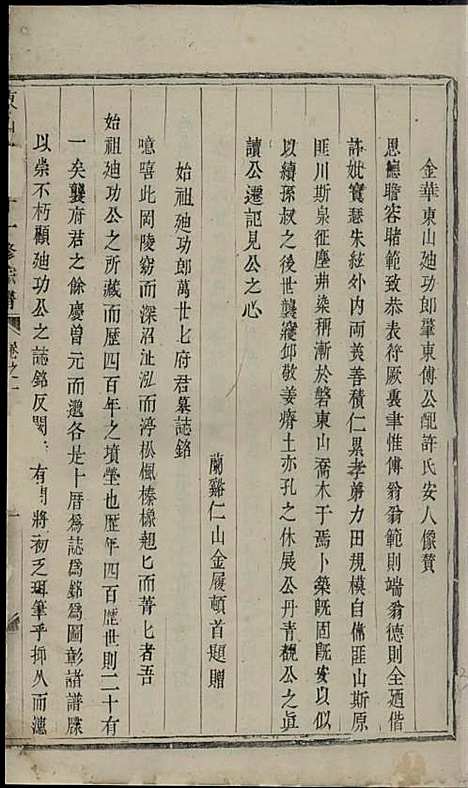 金華東山廸功郎肇東傅公配許氏安人像贊
思德瞻容睹範致恭表符厥裏聿惟傅翁翁範則端翁德則全廼偕
許妣寶瑟朱絃外內兩美善積仁累孝弟力田規模自備匪山斯原
匪川斯泉征塵弗染稱漸於磐東山喬木于焉卜築既固既安以似
以續孫叔之後世襲寢邱敬姜瘠土亦孔之休展公丹青覩公之真
讀公遷記見公之心
蘭谿仁山金履頓首題贈
始祖廸功郎萬世七府君墓誌銘
噫嘻此岡陵窈而深沼沚泓而渟松楓榛橡翹匕而菁匕者吾
始祖廸功公之所藏而歷四百年之墳塋也歷年四百歷世則二十有
一矣襲府君之餘慶曾元而邈各是十曆為誌為銘為圖彰諸譜牒
以崇不朽顧廸功公之誌銘反闕 有間將初乏珥筆乎抑久而湮
東山 十一修宗譜 卷之一 一